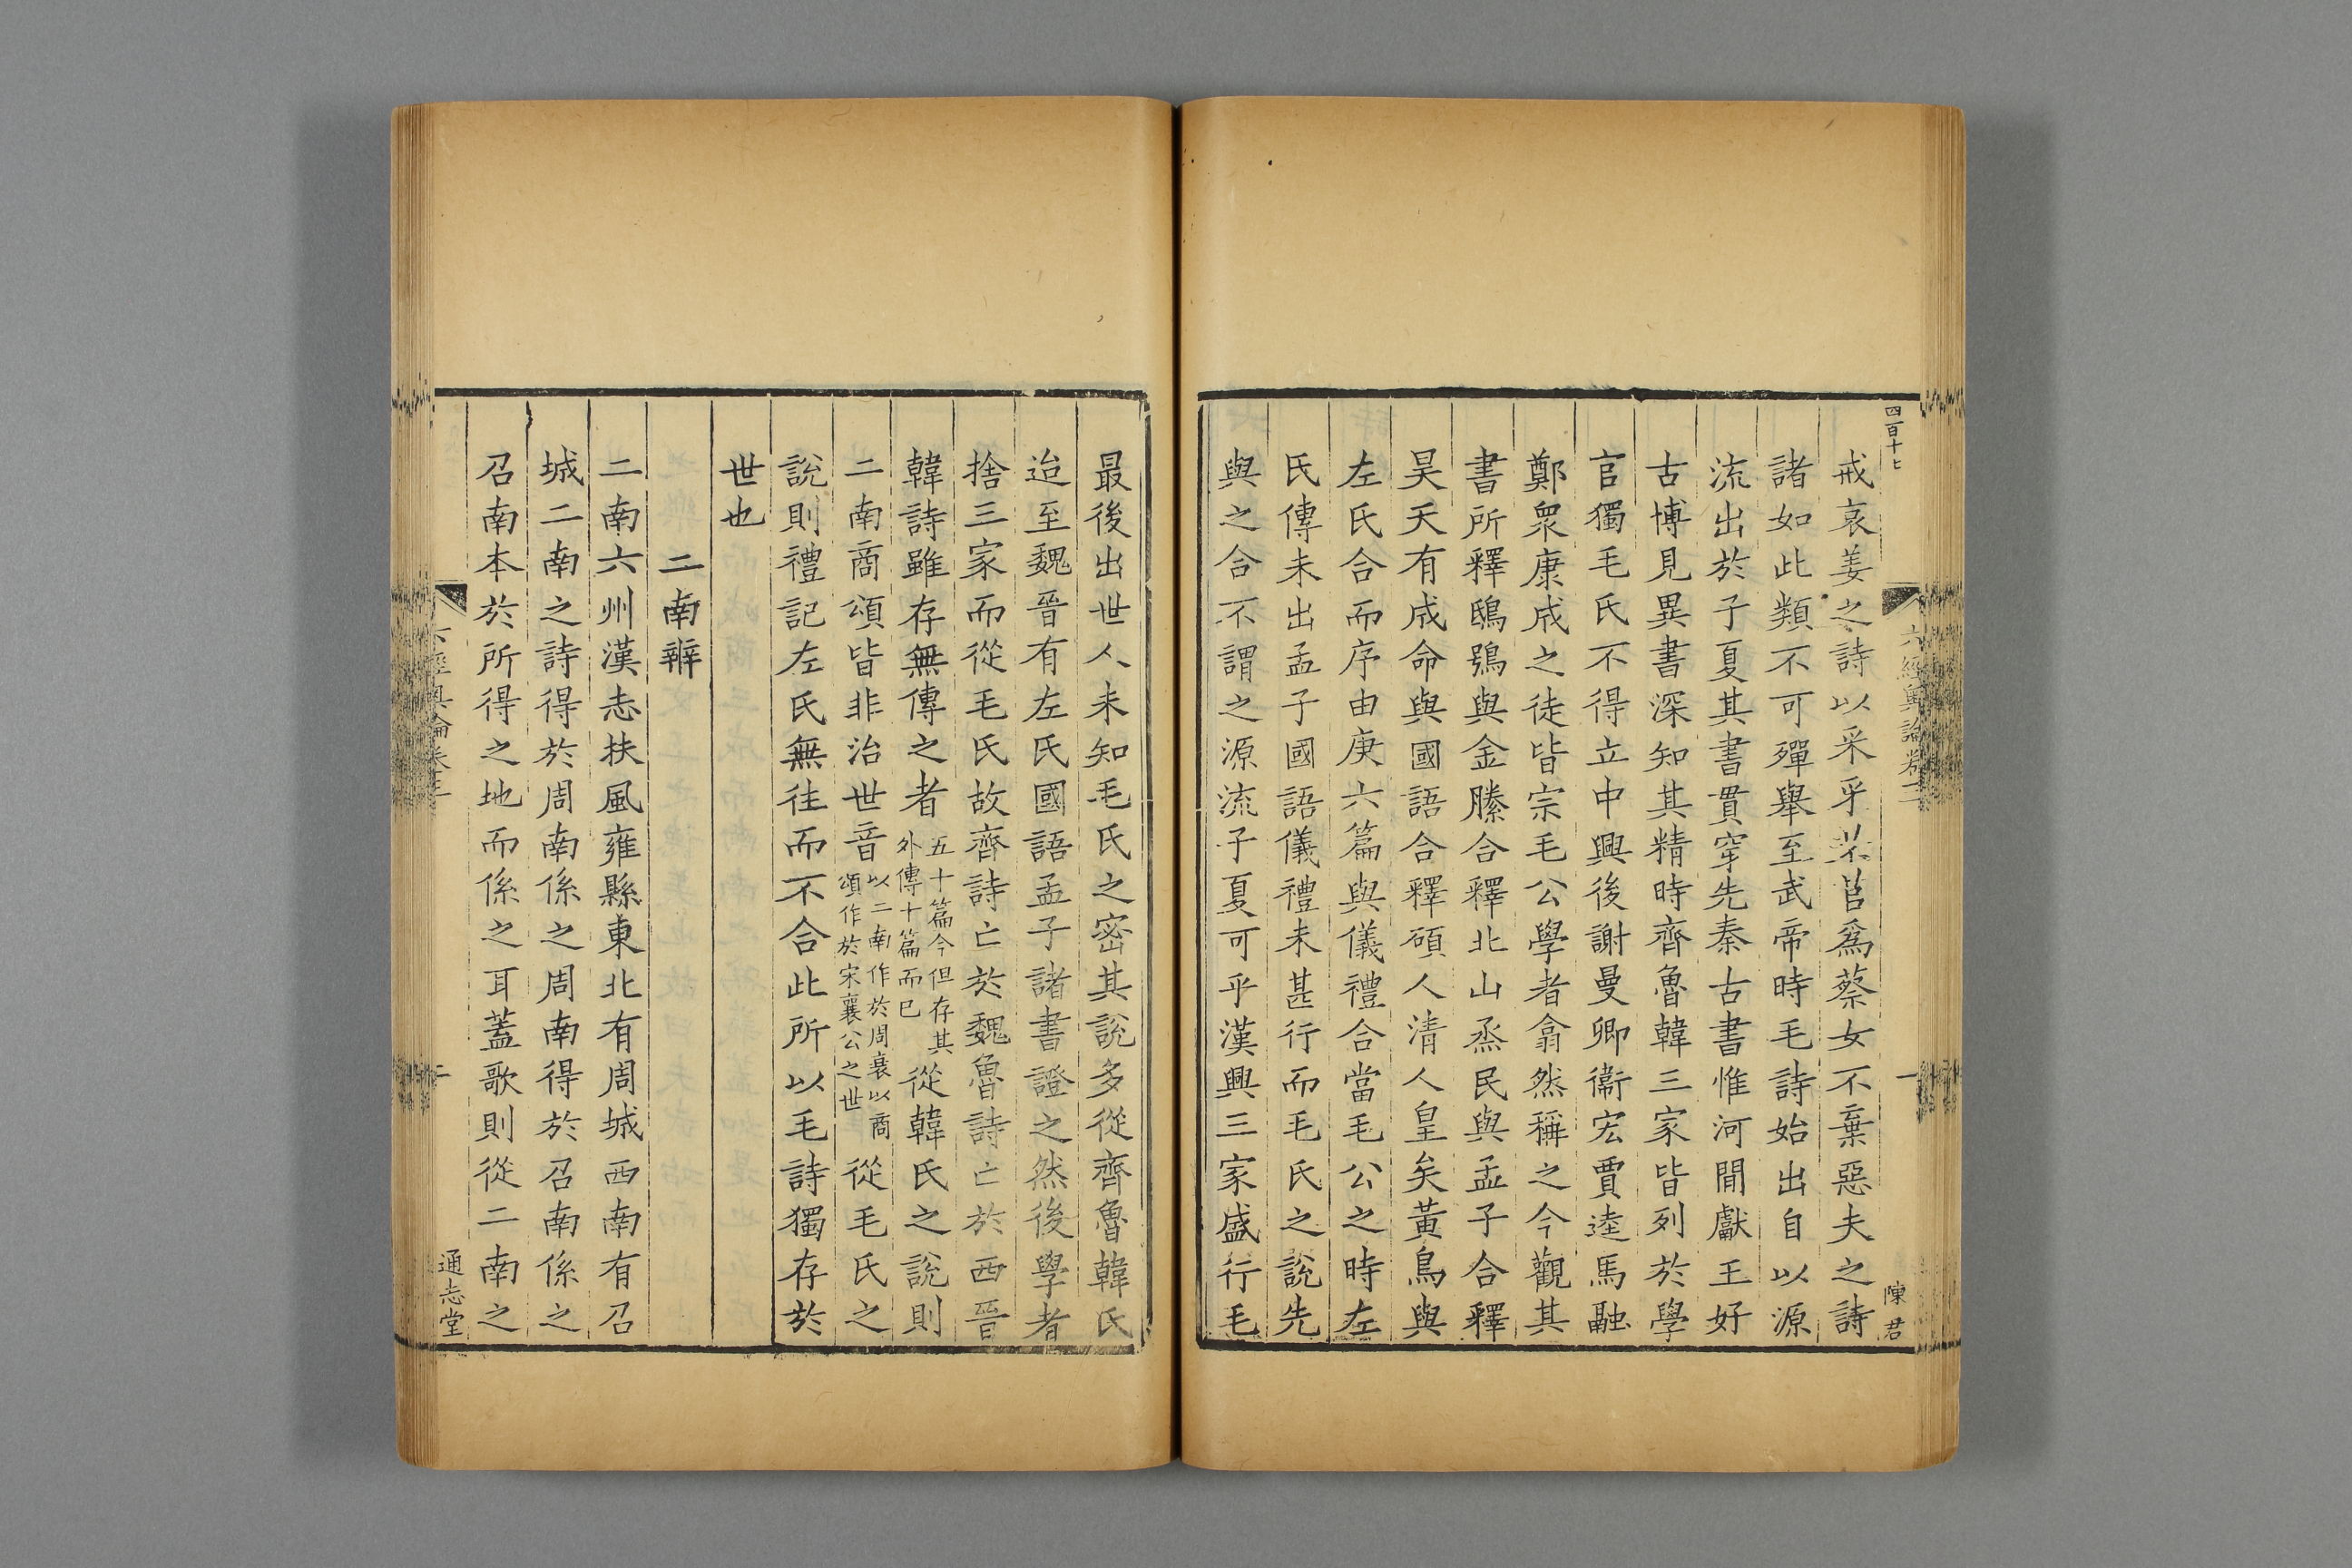 四百十七
六經奧論卷三
一
陳君
戒哀姜之詩以采乎芣苢爲蔡女不棄惡夫之詩
諸如此類不可殫舉至武帝時毛詩始出自以源
流出於子夏其書貫穿先秦古書惟河間獻王好
古博見異書深知其精時齊魯韓三家皆列於學
官獨毛氏不得立中興後謝曼卿衞宏賈逵馬融
鄭衆康成之徒皆宗毛公學者翕然稱之今觀其
書所釋鴟鴞與金縢合釋北山烝民與孟子合釋
昊天有成命與國語合釋碩人清人皇矣黃鳥與
左氏合而序由庚六篇與儀禮合當毛公之時左
氏傳未出孟子國語儀禮未甚行而毛氏之說先
與之合不謂之源流子夏可乎漢興三家盛行毛
最後出世人未知毛氏之密其說多從齊魯韓氏
迨至魏晉有左氏國語孟子諸書證之然後學者
捨三家而從毛氏故齊詩亡於魏魯詩亡於西晉
韓詩雖存無傳之者五十篇今但存其外傳十篇而已從韓氏之說則
二南商頌皆非治世音以二南作於周衰以商頌作於宋襄公之世從毛氏之
說則禮記左氏無往而不合此所以毛詩獨存於
世也
二南辨
二南六州漢志扶風雍縣東北有周城西南有召
城二南之詩得於周南係之周南得於召南係之
召南本於所得之地而係之耳蓋歌則從二南之
六經奧論卷三
通志堂